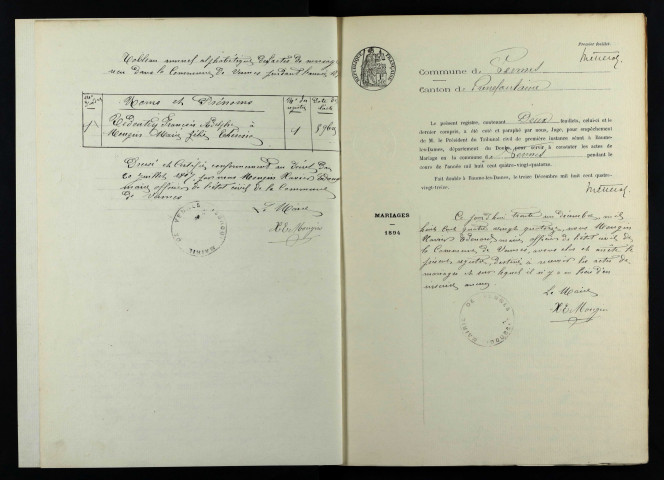 Tableau annuel alphabétique des actes de mariage
reçu dans la Commune de Vennes pendant l'année
Noms et Prénoms
N° du registre
Date de l'acte
François Adolphe à
Mongin Marie Zélie
1
Dressé et Certifié conformément au décret du
20 juillet 1807 par nous Mongin Xavier Edouard
maire officier de l'état civil de la Commune
de Vennes
Le Maire
X E Mongin
MAIRIE DE VENNES (DOUBS)
RÉPUBLIQUE FRANÇAISE
Premier feuillet.
Commune de Vennes
Canton de Pierrefontaine
Le présent registre, contenant Deux feuillets, celui-ci et le
dernier compris, a été coté et paraphé par nous, Juge, pour empêchement
de M. le Président du Tribunal civil de première instance séant à Baume-
les-Dames, département du Doubs, pour servir à constater les actes de
Mariage en la commune de Vennes pendant le
cours de l'année mil huit cent quatre-vingt-quatorze.
Fait double à Baume-les-Dames, le treize Décembre mil huit cent quatre-
vingt-treize.
MARIAGES
1894
Ce jourd'hui trente un décembre mil
huit cent quatre vingt quatorze, nous Mongin
Xavier Edouard, maire, officier de l'état civil de
la Commune de Vennes, avons clos et arrêté le
présent registre destiné à recevoir les actes de
mariages et sur lequel il n'y a
inscrit aucun.
Le Maire
X E Mongin
MAIRIE DE VENNES (DOUBS)